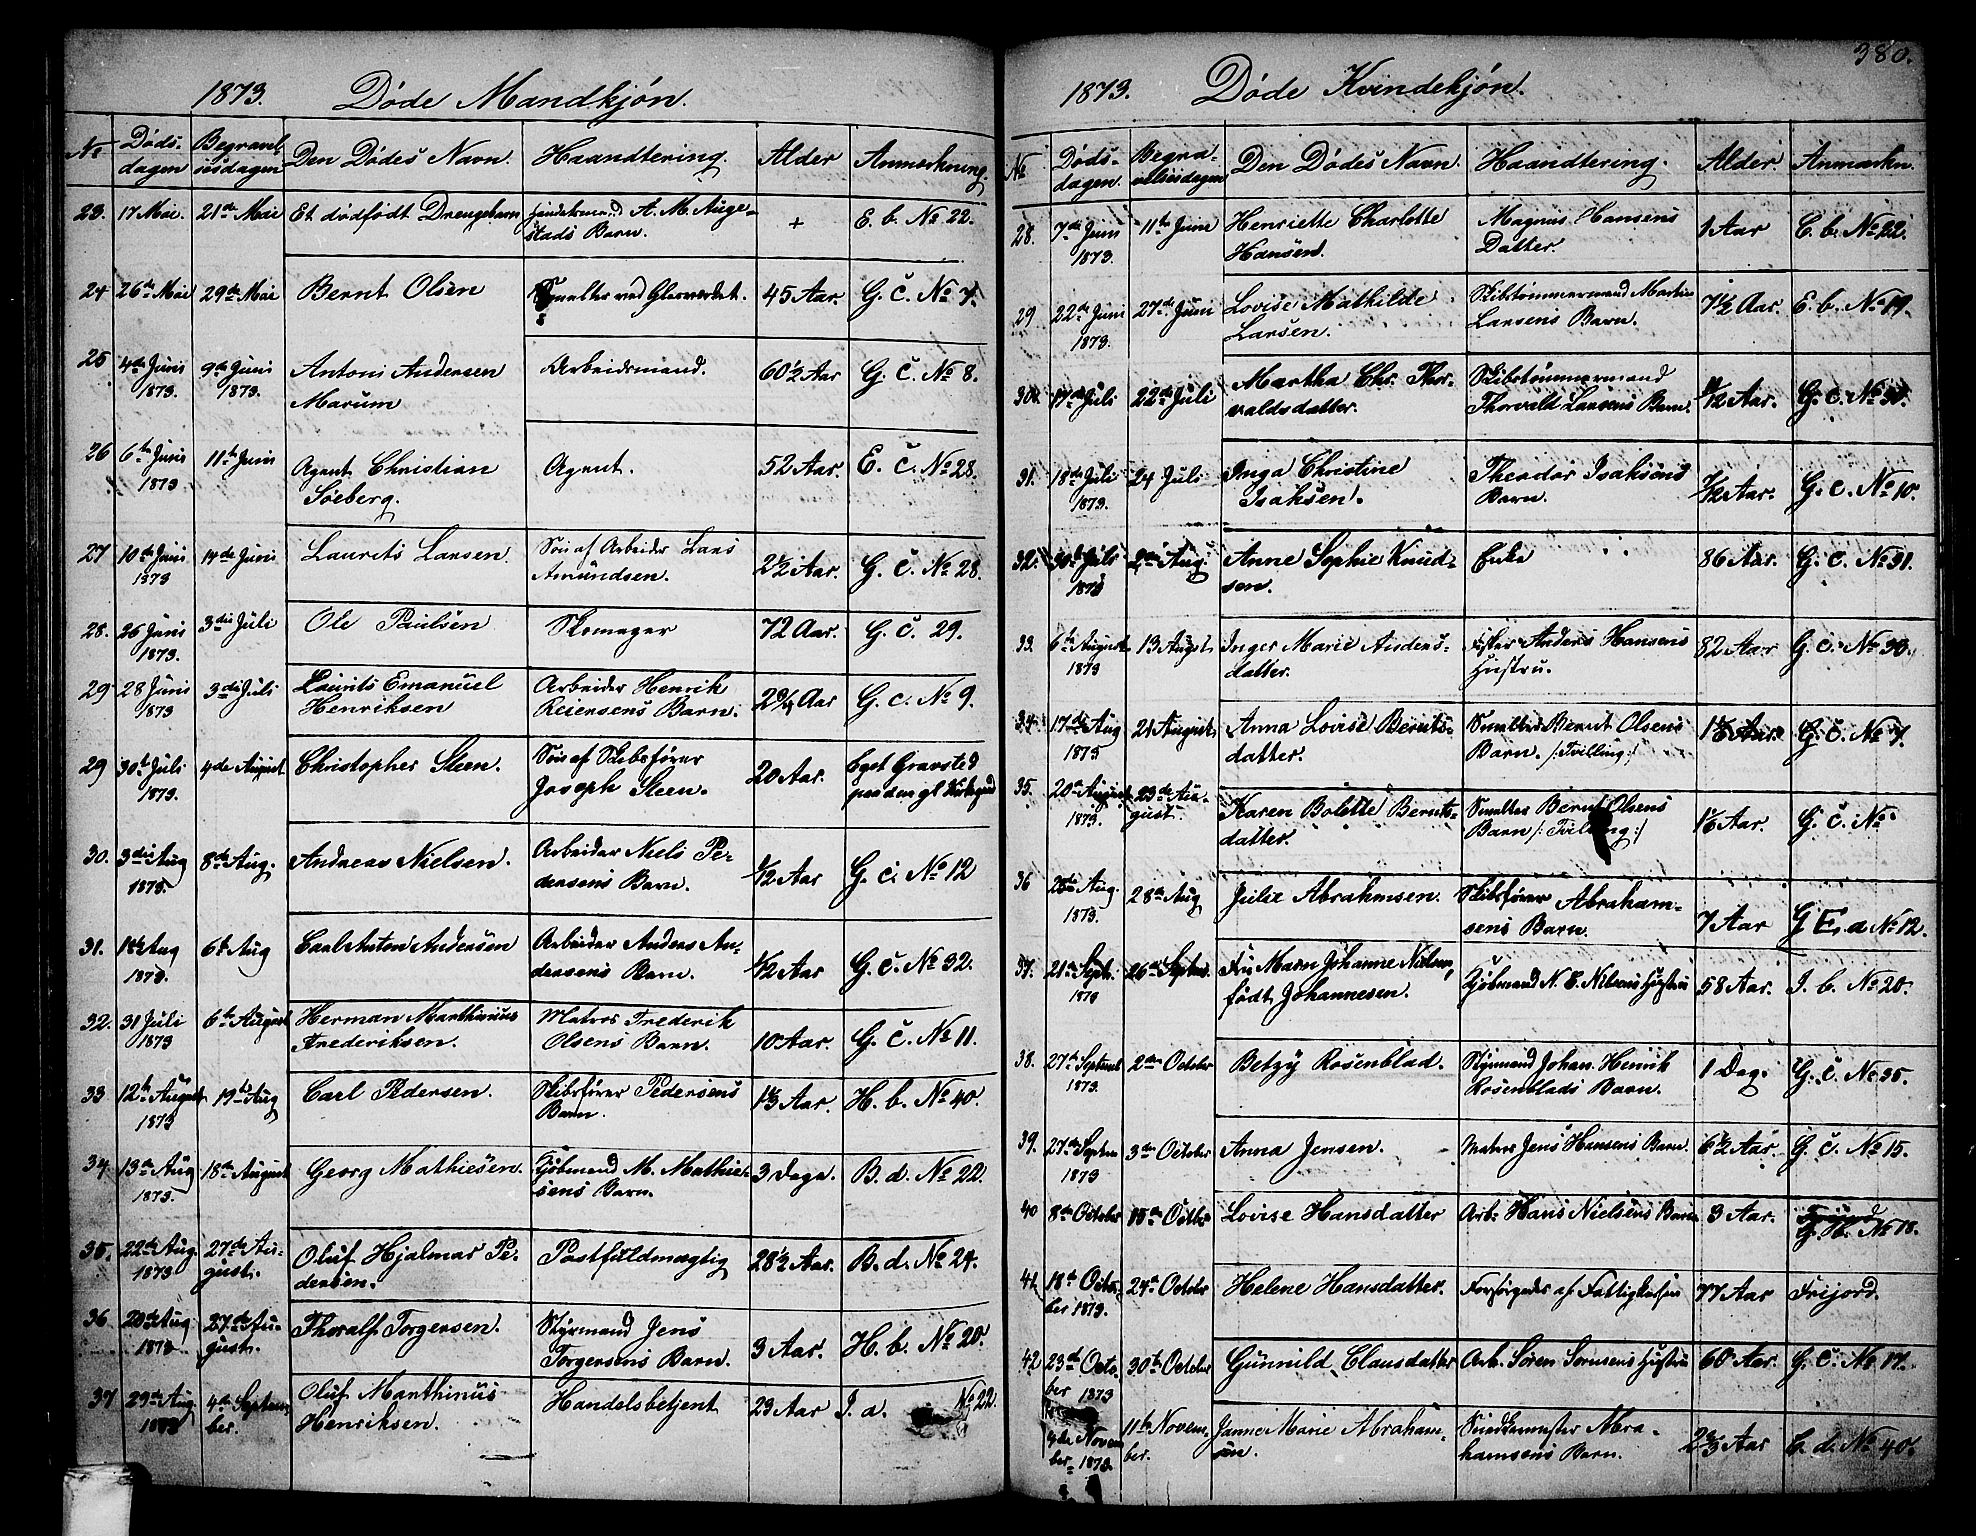 380.
1873. Døde Mandkjøn.
No Døds- dagen Begravel- sesdagen Den Dødes Navn. Haandtering. Alder Anmærkning.
23. 17 Mai. 21de Mai Et dødfødt Drengebarn Handelsmand A. M. Auge-
stads Barn. + E. b. No 22.
24 26de Mai 29de Mai Bernt Olsen Smelter ved Glasværket. 45 Aar. G. c. No 7.
25 4de Juni 9de Juni Antoni Andersen Arbeidsmand. 60½ Aar G. c. No 8.
1873. 1873. Marum
26 6te Juni 11te Juni Agent Christian Agent. 52 Aar. E. c. No 28.
1873 Søeberg.
27 10de Juni 14de Juni Laurits Larsen. Søn af Arbeider Lars 2½ Aar. G. c. No 28.
1873 Amundsen.
28. 26 Juni 3die Juli Ole Paulsen Skomager 72 Aar. G. c. 29.
1873.
29 28 Juni 3die Juli Laurits Emanuel Arbeider Henrik 2¾ Aar G. c. No 9.
1873 Henriksen Reiersens Barn.
29 30te Juli 4de August Christopher Steen. Søn af Skibsfører 20 Aar. Eget Gravsted
1873. Joseph Steen. paa den gl Kirkegaard
30. 3die Aug 8de Aug. Andreas Nielsen. Arbeider Niels Pe- /12 Aar G. c. No 12
1873. dersens Barn.
31. 1ste Aug 6te Aug Carl Anton Andersen Arbeider Anders An- /12 Aar G. c. No 32.
1873. dersens Barn.
32. 31 Juli 6te August Herman Marthinius Matros Frederik 10 Aar. G. c. No 11.
1873 Frederiksen. Olsens Barn.
33 12te August 19te Aug Carl Pedersen. Skibsfører Pedersens Aar. H. b. No 40.
1873 Barn.
34. 13de Aug 18de August Georg Mathiesen. Kjøbmand M. Mathie- 3 Dage. B. d. No 22.
1873. sens Barn.
35. 22de Aug 27de Au- Oluf Hjalmar Pe- Postfuldmægtig 28½ Aar. B. d. No 24.
1873 gust. dersen.
36 20de Aug 27de Au- Thoralf Torgersen. Styrmand Jens 3 Aar. H. b. No 20.
1873 gust. Torgersens Barn.
37 29de Aug. 4de Septem- Oluf Marthinus Handelsbetjent 23 Aar I. a. No 22.
1873 ber. Henriksen.
1873. Døde Kvindekjøn.
No Døds- dagen. Begra- velsesdagen Den Dødes Navn. Haandtering. Alder. Anmærkn.
28. 7de Juni 11te Juni Henriette Charlotte Magnus Hansens 1 Aar C. b. No 22.
1873. Hansen. Datter.
29 22de Juni 27de Juni Lovise Mathilde Skibstømmermand Martin 7½ Aar. E. b. No 19.
1873. Larsen. Larsens Barn.
30. 17de Juli 22de Juli Martha Chr. Thor- Skibstømmermand /12 Aar. G. c. No 30.
valdsdatter. Thorvald Larsens Barn.
31. 18de Juli 24 Juli Inga Christine Theodor Isaksens /12 Aar. G. c. No 10.
1873. Isaksen. Barn.
32. 30te Juli 2den Aug. Anne Sophie Knud- Enke 86 Aar. G. c. No 31.
1873 sen.
33. 6te August 13 August Inger Marie Anders- Fisker Anders Hansens 82 Aar G. c. No 30.
1873 datter. Hustru.
34. 17de Aug 21 August Anna Lovise Bernts- Smelter Bernt Olsens Aar. G. c. No 7.
1873 datter. Barn. /:Tvilling:/
35. 20de August 23de Au- Karen Bolette Bernts- Smelter Bernt Olsens Aar. G. c. No
1873. gust. datter. Barn /:Tvilling:/
36 Aug. 28de Aug Julie Abrahamsen. Skibsfører Abraham- 7 Aar G E. a No 12.
1873. sens Barn.
37. 21de Sept. 26de Septbr. Fru Maren Johanne Nielsen, Kjøbmand N. E. Nielsens Hustru 58 Aar. I. b. No 20.
1873 født Johannesen.
38. 27de Septemb 2den October Betzy Rosenblad. Styrmand Johan Henrik 1 Dag. G. c. No 35.
1873. Rosenblads Barn.
39. 27de Septem 3die October Anna Jensen. Matros Jens Hansens Barn. 6½ Aar. G. c. No 15.
1873
40 8de October 15de Octbr Lovise Hansdatter Arb. Hans Nielsens Barn 3 Aar. G. H. No 18.
41 18de Octo- 24de October Helene Hansdatter. Forsørgedes af Fattigkassen 77 Aar Frijord.
ber 1873.
42 23de Octo- 30te October Gunnild Clausdatter Arb. Søren Sørensens Hustru 60 Aar. G. c. No 17.
ber 1873
4de Novem- 11te Novem- Janne Marie Abraham- Smedemester Abra- Aar C. d. No 40.
ber 1873. ber. sen. hamsens Barn.